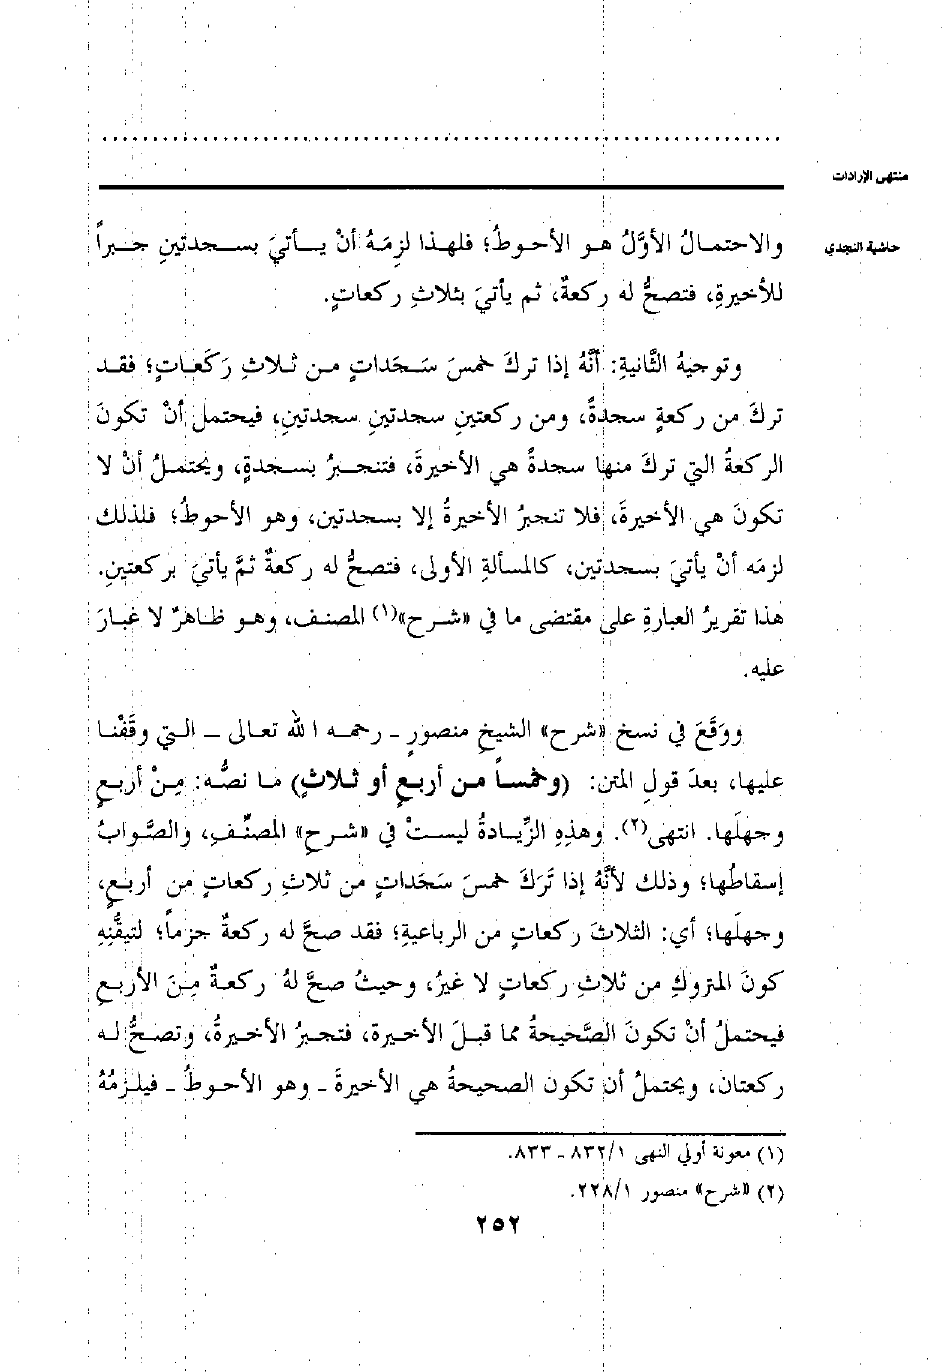 منتهى الإرادات
حاشية النجدي
والاحتمالُ الأوَّلُ هو الأحوطُ؛ فلهذا لزِمَهُ أنْ يأتيَ بسجدتينِ جبراً
للأخيرةِ، فتصحُّ له ركعةٌ، ثم يأتيَ بثلاثِ ركعاتٍ.
وتوجيهُ الثَّانيةِ: أنَّهُ إذا تركَ خمسَ سَجَداتٍ من ثلاثِ رَكَعاتٍ؛ فقد
تركَ من ركعةٍ سجدةً، ومن ركعتينِ سجدتينِ سجدتينِ، فيحتملُ أنْ تكونَ
الركعةُ التي تركَ منها سجدةً هي الأخيرةَ، فتنجبرُ بسجدةٍ، ويحتملُ أنْ لا
تكونَ هي الأخيرةَ، فلا تنجبرُ الأخيرةُ إلا بسجدتين، وهو الأحوطُ؛ فلذلك
لزمَه أنْ يأتيَ بسجدتين، كالمسألةِ الأولى، فتصحُّ له ركعةٌ ثمَّ يأتيَ بركعتينِ.
هذا تقريرُ العبارةِ على مقتضى ما في «شرح»(١) المصنف، وهو ظاهرٌ لا غبارَ
عليه.
ووَقَعَ في نسخ «شرح» الشيخِ منصورٍ ـ رحمه الله تعالى ـ التي وقَفْنا
عليها، بعدَ قولِ المتن: (وخمساً من أربعٍ أو ثلاثٍ) ما نصُّه: مِنْ أربعٍ
وجهلَها. انتهى(٢). وهذهِ الزِّيادةُ ليستْ في «شرحِ» المصنِّفِ، والصَّوابُ
إسقاطُها؛ وذلك لأنَّهُ إذا تَرَكَ خمسَ سَجَداتٍ من ثلاثِ ركعاتٍ من أربعٍ،
وجهلَها؛ أي: الثلاثَ ركعاتٍ من الرباعيةِ؛ فقد صحَّ له ركعةٌ جزماً؛ لتيقُّنِهِ
كونَ المتروكِ من ثلاثِ ركعاتٍ لا غيرُ، وحيثُ صحَّ لهُ ركعةٌ مِنَ الأربعِ
فيحتملُ أنْ تكونَ الصَّحيحةُ مما قبلَ الأخيرة، فتجبرُ الأخيرةُ، وتصحُّ له
ركعتان، ويحتملُ أن تكون الصحيحةُ هي الأخيرةَ ـ وهو الأحوطُ ـ فيلزمُهُ
(١) معونة أولي النهى ٨٣٢/١ ـ ٨٣٣.
(٢) «شرح» منصور ٢٢٨/١.
٢٥٢